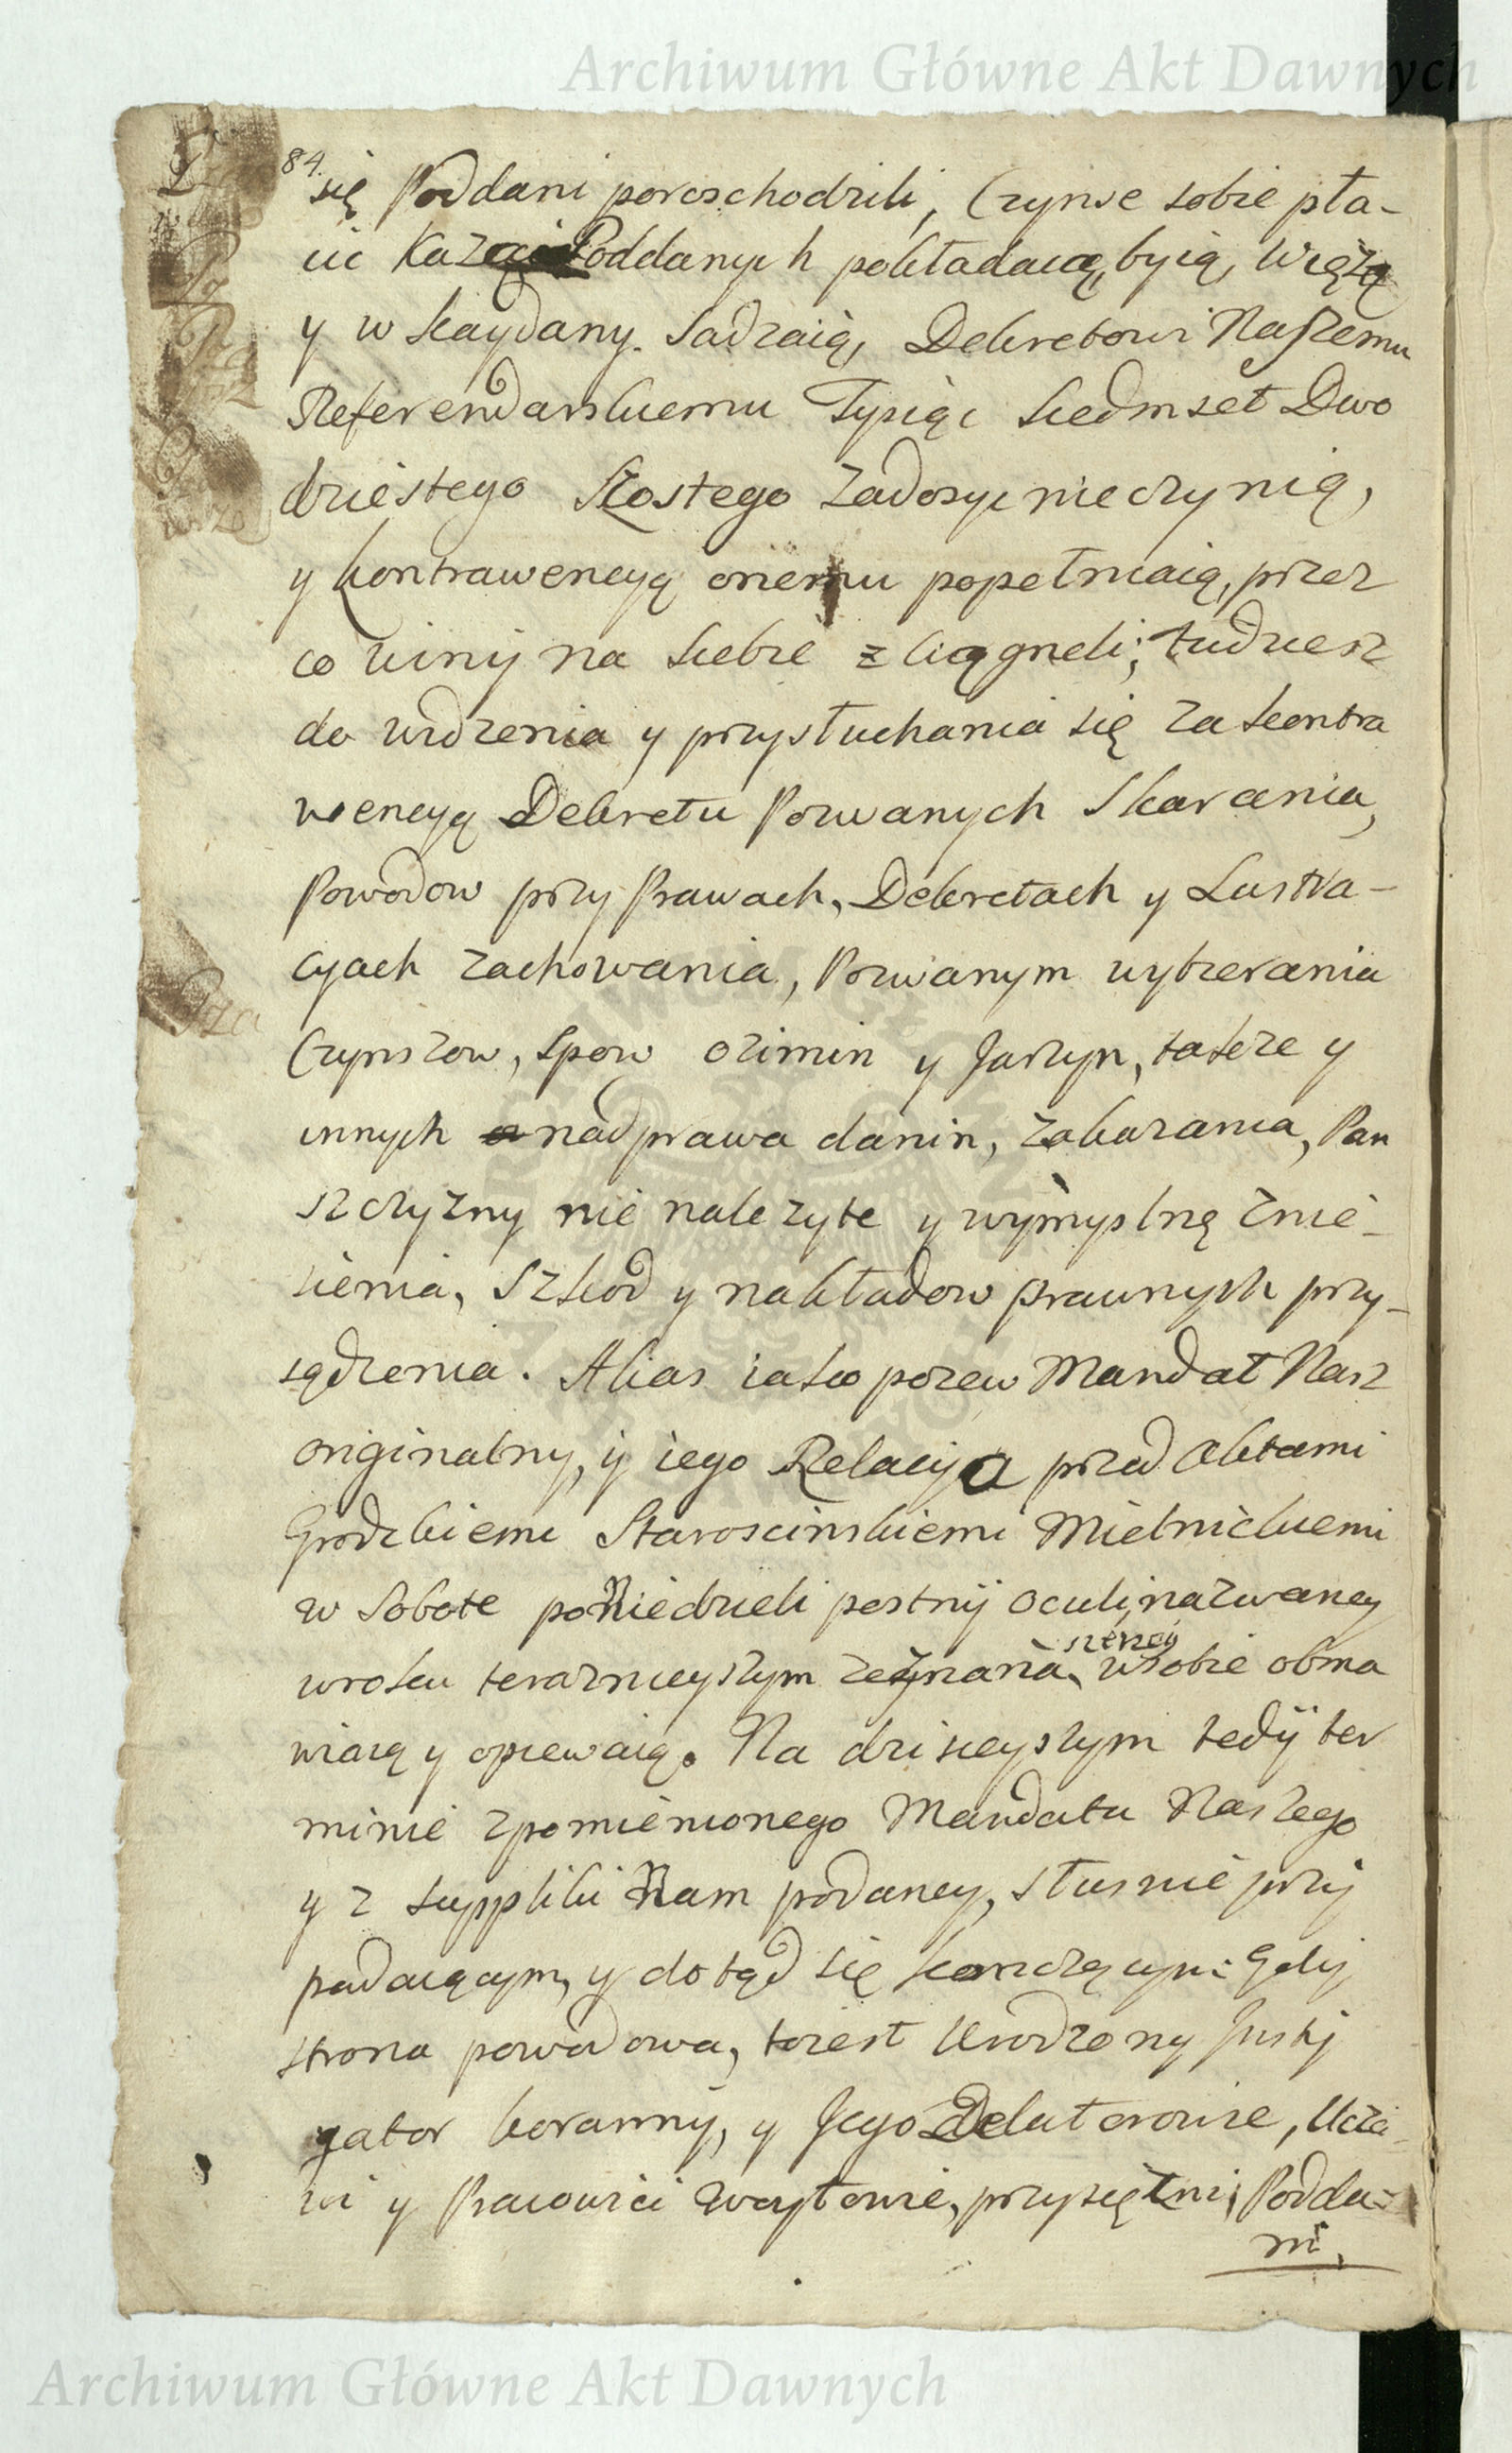 Archiwum Główne Akt Dawnych
84.
się Poddani poroschodzili, Czynsze sobie pła-
cic Każą Poddanych pokładaią, byią, Więżą
y w kaydany sadzaią, Dekretowi Naszemu
Referendarskiemu Tysiąc Siedmset Dwo
dziestego Szostego zadosyc nieczynią,
y kontrawencyą onemu popełniaią, przez
co winy na siebie zciągneli; tudziesz
do widzenia y przysłuchania się za kontra
wencyą Dekretu Pozwanych Skarania,
Powodow przy Prawach, Dekretach y Lustra-
cyach zachowania, Pozwanym wybierania
Czynszow, Spow ozimin y Jarzyn, także y
innych nad prawa danin, zakazania, Pan
szczyzny nie należyte y wymyslną Znie-
sienia, Szkod y nakładow prawnych przy-
sądzenia. Alias iako pozew Mandat Nasz
originalny, y iego Relacya przed Aktami
Grodzkiemi Staroscinskiemi Mielnickiemi
w Sobote po Niedzieli postny Oculi nazwaney
wroku teraznieyszym zeznana, szerzey wsobie obma
wiaią y opiewaią. Na dzisieyszym tedy ter
minie zpomienionego Mandatu Naszego
y z Suppliki Nam podaney, słusnie przy
padaiącym, y dotąd się konczącym: Gdy
strona powodowa, toiest Urodzony Insty
gator koranny, y Jego Delatorowie, Uczci
wi y Pracowici Woytowie, przysiężni, Podda=
ni,
Archiwum Główne Akt Dawnych